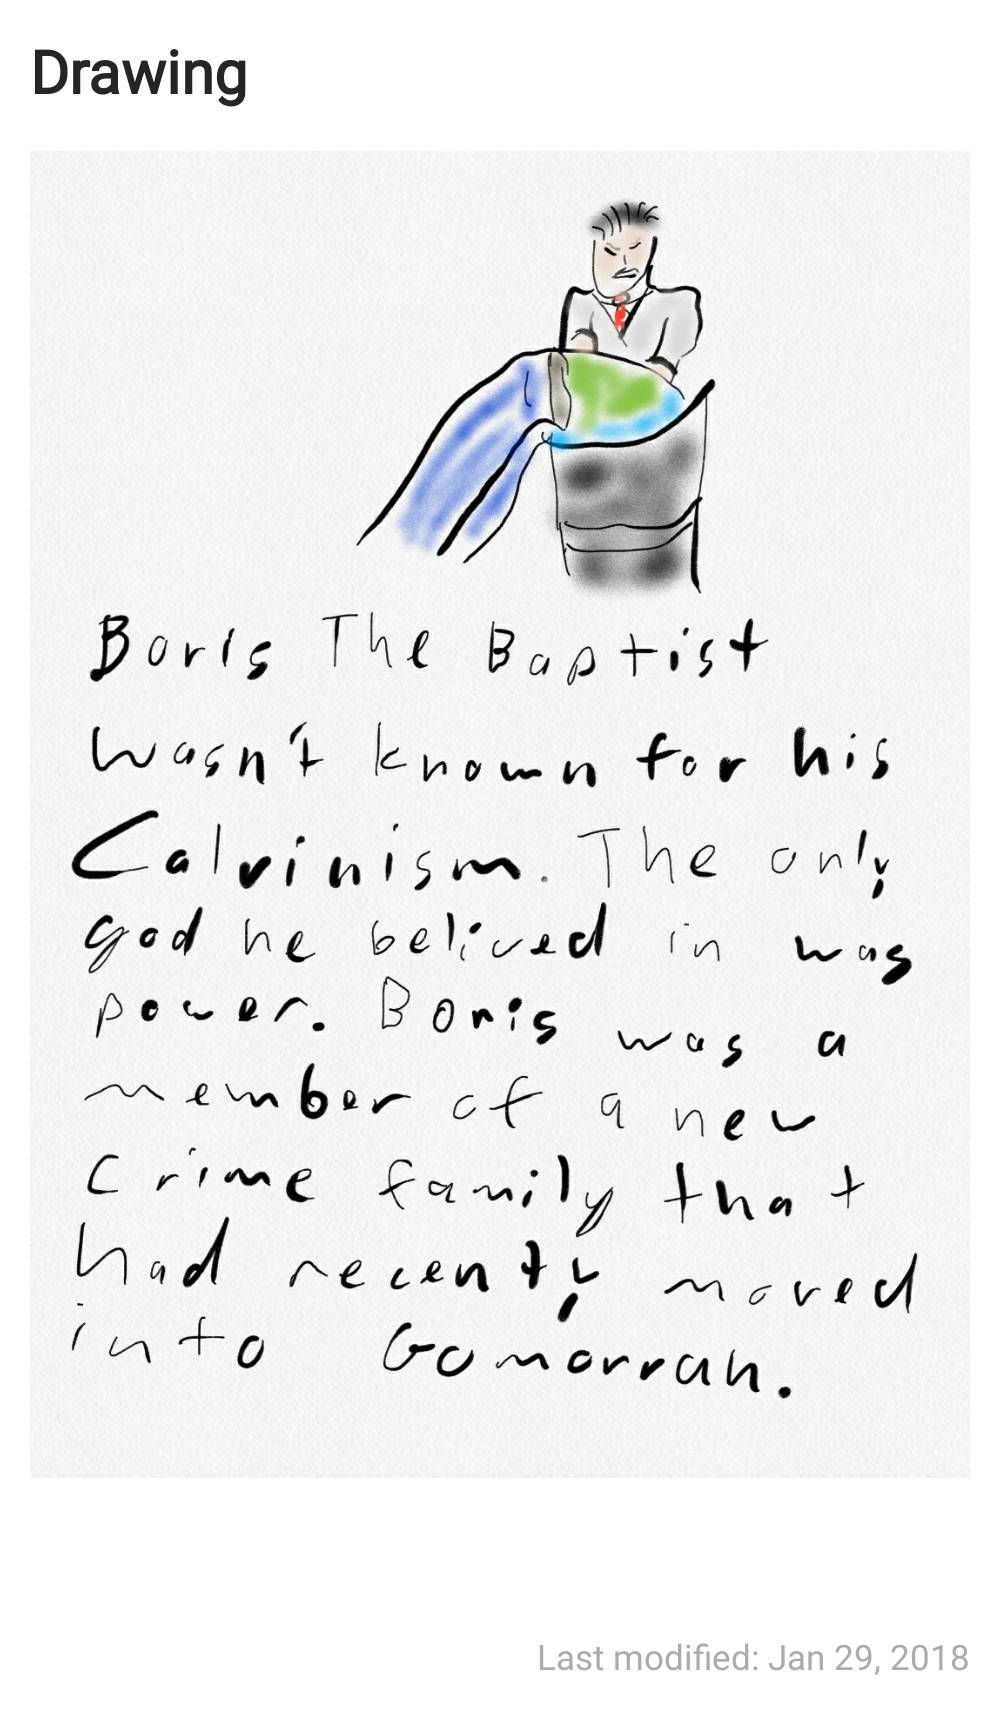 Drawing
Boris The Baptist
wasn't known for his
Calvinism. The only
god he belived in was
power. Boris was a
member of a new
crime family that
had recently moved
into Gomorrah.
Last modified: Jan 29, 2018